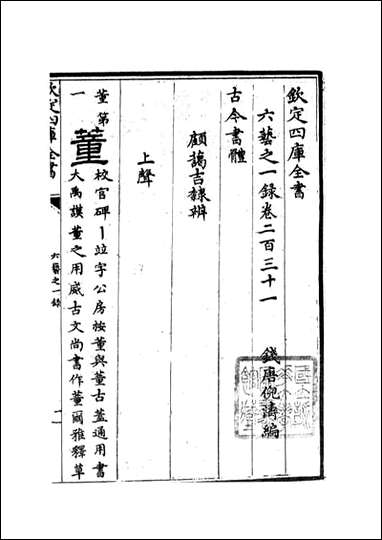 欽定四庫全書
六藝之一録卷二百三十一
錢唐倪濤編
古今書體
顧藹吉隸辨
上聲
董第一
董
校官碑丨竝字公房按董與蕫古蓋通用書
大禹謨董之用威古文尚書作蕫爾雅釋草
欽定四庫全書
六藝之一録
一